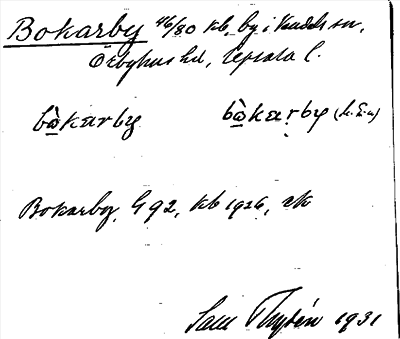 Bokarby 46/80 kb, by i Knutby sn,
Örbyhus hd, Uppsala l.
bò̱karby bò̱kaṛby (h. ä. u)
Bokarby G 92, kb 1926, rk
Sam Thysén 1931